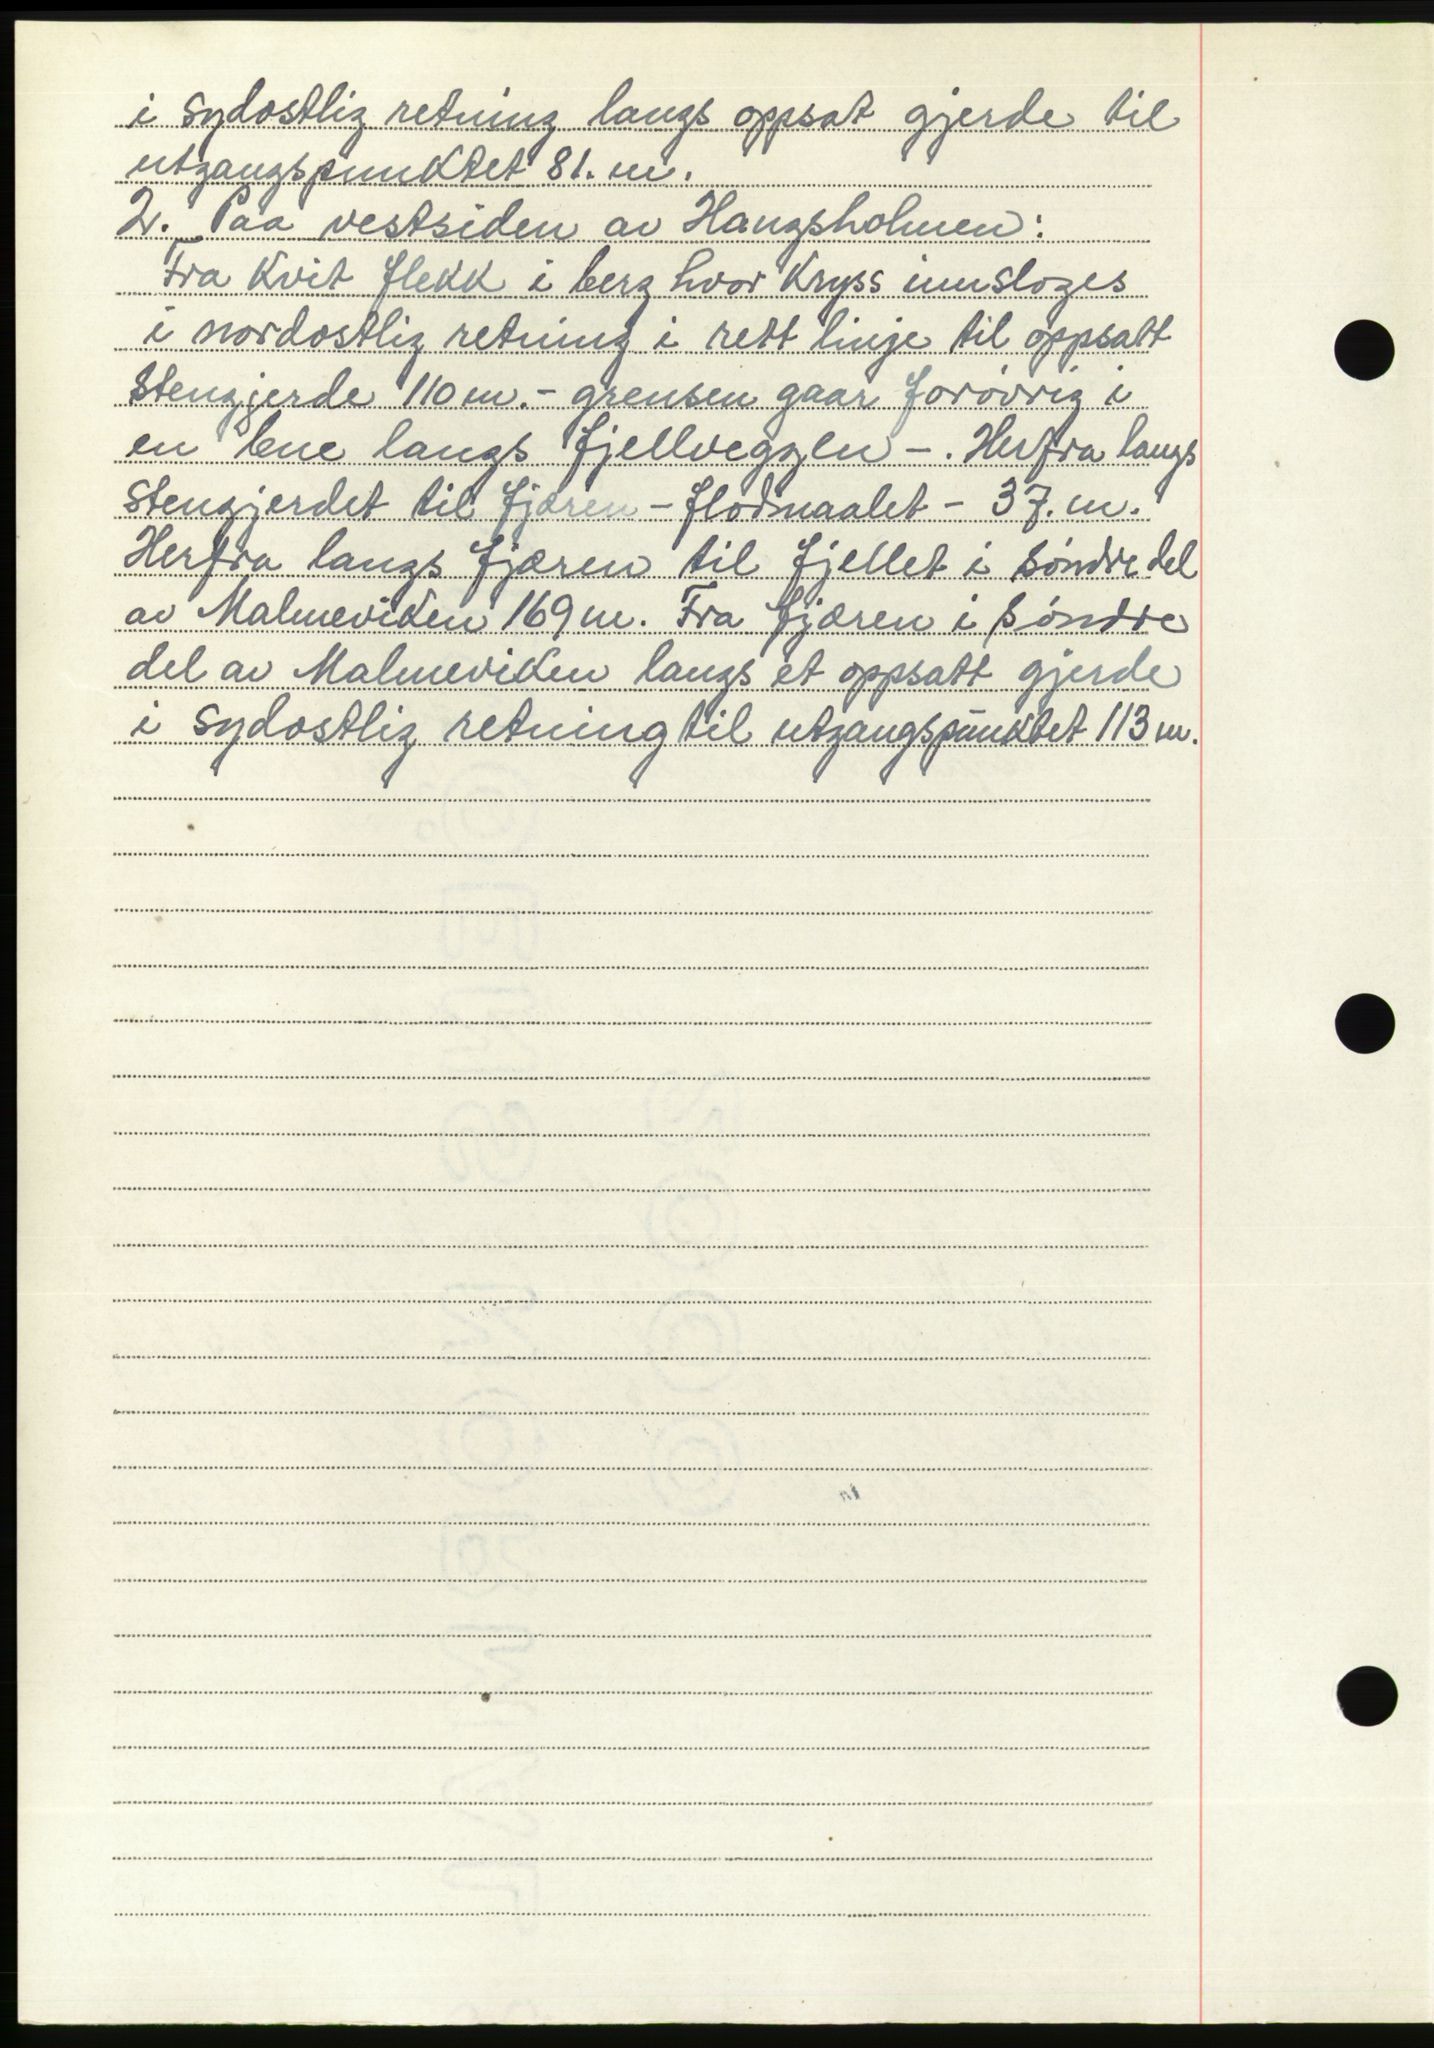 i sydostlig retning langs oppsat gjerde til
utgangspunktet 81. m.
2. Paa vestsiden av Haugsholmen:
Fra Kvit flekk i berg hvor Kryss innsloges
i nordostlig retning i rett linje til oppsatt
stengjerde 110 m. - grensen gaar forövrig i
en bue langs fjellveggen -. Herfra langs
stengjerdet til fjæren - flodmaalet - 37. m.
Herfra langs fjæren til fjellet i söndre del
av Malmeviken 169 m. Fra fjæren i söndre
del av Malmeviken langs et oppsatt gjerde
i sydostlig retning til utgangspunktet 113 m.